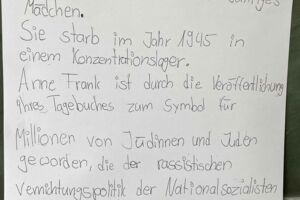 Mädchen.
Sie starb im Jahr 1945 in
einem Konzentrationslager.
Anne Frank ist durch die Veröffentlichung
ihres Tagebuches zum Symbol für
Millionen von Jüdinnen und Juden
geworden, die der rassistischen
Vernichtungspolitik der Nationalsozialisten